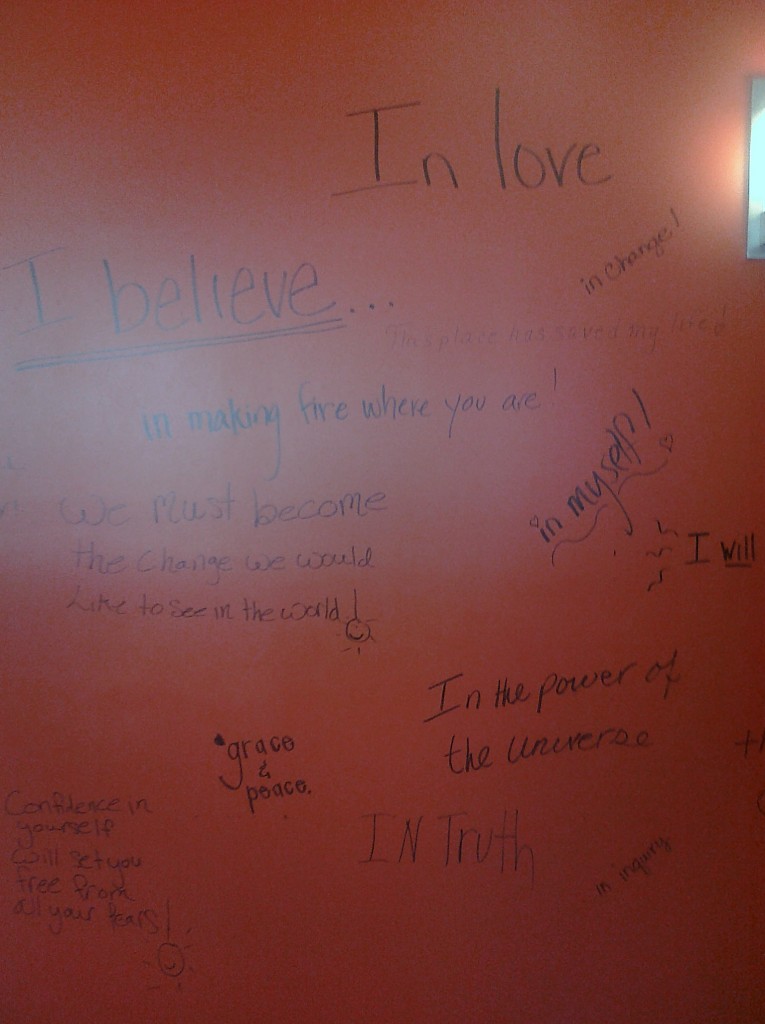 In love
in change!
I believe...
This place has saved my
in making fire where you are!
in myself!
We must become
the change we would
Like to see in the world!
I will
In the power of
the universe
grace
&
peace.
Confidence in
yourself
will set you
free from
all your fears!
IN Truth
in inquiry